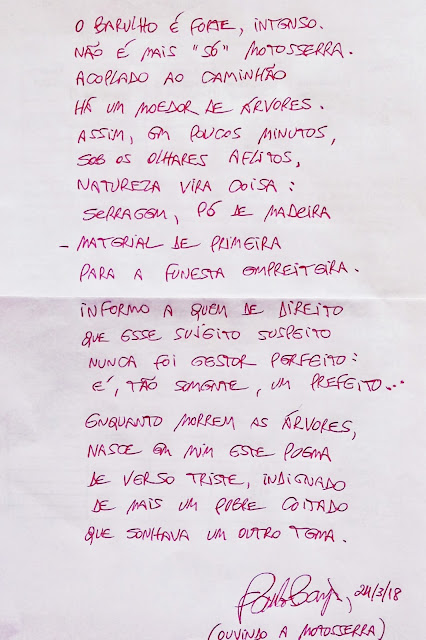 O BARULHO É FORTE, INTENSO.
NÃO É MAIS "SÓ" MOTOSSERRA.
ACOPLADO AO CAMINHÃO
HÁ UM MOEDOR DE ÁRVORES.
ASSIM, EM POUCOS MINUTOS,
SOB OS OLHARES AFLITOS,
NATUREZA VIRA COISA:
SERRAGEM, PÓ DE MADEIRA
- MATERIAL DE PRIMEIRA
PARA A FUNESTA EMPREITEIRA.
INFORMO A QUEM DE DIREITO
QUE ESSE SUJEITO SUSPEITO
NUNCA FOI GESTOR PERFEITO:
É, TÃO SOMENTE, UM PREFEITO...
ENQUANTO MORREM AS ÁRVORES,
NASCE EM MIM ESTE POEMA
DE VERSO TRISTE, INDIGNADO
DE MAIS UM POBRE COITADO
QUE SONHAVA UM OUTRO TEMA.
24/3/18
(OUVINDO A MOTOSSERRA)